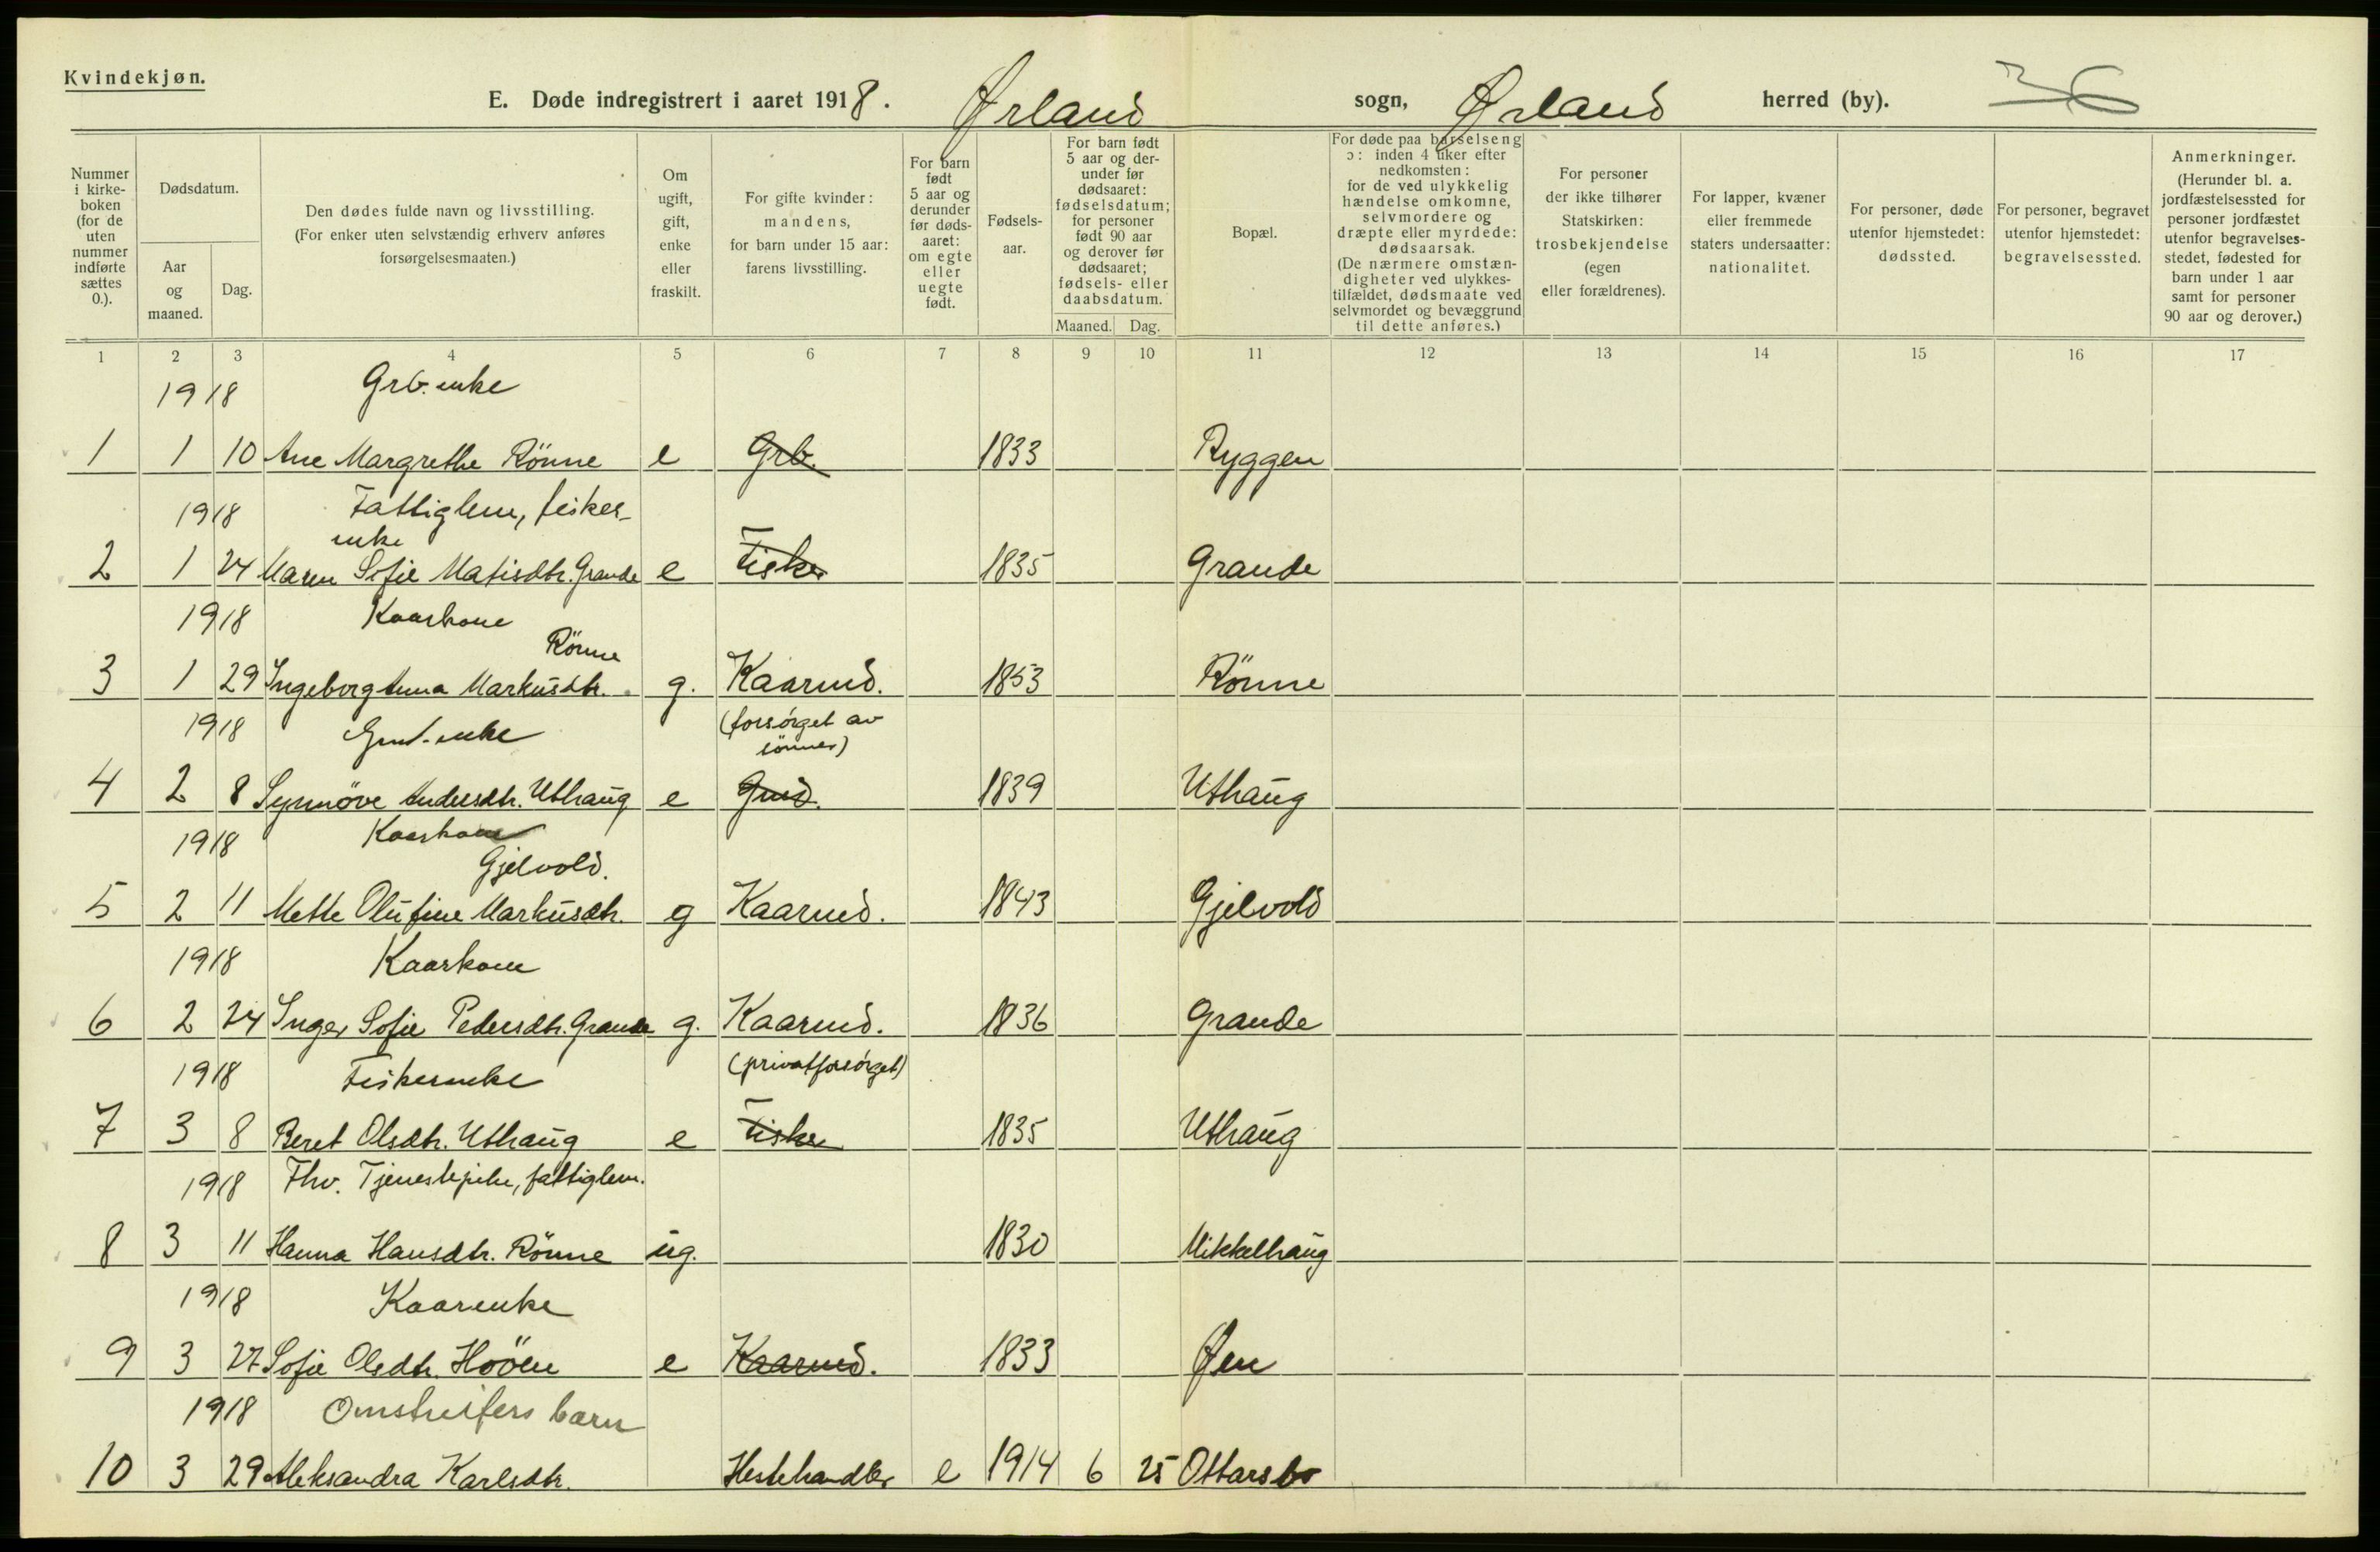 Kvindekjøn.
E. Døde indregistrert i aaret 1918. Ørland sogn, Ørland herred (by). 36
Nummer i kirke-boken (for de uten nummer indførte sættes 0.).
Dødsdatum.
Aar og maaned.
Dag.
Den dødes fulde navn og livsstilling. (For enker uten selvstændig erhverv anføres forsørgelsesmaaten.)
Om ugift, gift, enke eller fraskilt.
For gifte kvinder: mandens, for barn under 15 aar: farens livsstilling.
For barn født 5 aar og derunder før døds-aaret: om egte eller uegte født.
Fødsels-aar.
For barn født 5 aar og der-under før dødsaaret: fødselsdatum; for personer født 90 aar og derover før dødsaaret; fødsels- eller daabsdatum.
Maaned. Dag.
Bopæl.
For døde paa barselseng ɔ: inden 4 uker efter nedkomsten: for de ved ulykkelig hændelse omkomne, selvmordere og dræpte eller myrdede: dødsaarsak. (De nærmere omstæn-digheter ved ulykkes-tilfældet, dødsmaate ved selvmordet og bevæggrund til dette anføres.)
For personer der ikke tilhører Statskirken: trosbekjendelse (egen eller forældrenes).
For lapper, kvæner eller fremmede staters undersaatter: nationalitet.
For personer, døde utenfor hjemstedet: dødssted.
For personer, begravet utenfor hjemstedet: begravelsessted.
Anmerkninger. (Herunder bl. a. jordfæstelsessted for personer jordfæstet utenfor begravelses-stedet, fødested for barn under 1 aar samt for personer 90 aar og derover.)
1 2 3 4 5 6 7 8 9 10 11 12 13 14 15 16 17
1918 Grb. enke
1 1 10 Ane Margrethe Rönne e Grb. 1833 Ryggen
1918 Fattiglem, fisker-
enke
2 1 24 Maren Sofie Matisdtr. Grande e Fisker 1835 Grande
1918 Kaarkone
Rönne
3 1 29 Ingeborg Anna Markusdtr. g. Kaarmd. 1853 Rönne
1918 Gmd.-enke (forsörget av
sönner)
4 2 8 Synnöve Andersdtr. Uthaug e Gmd. 1839 Uthaug
1918 Kaarkone
Gjelvold.
5 2 11 Mette Olufine Markusdtr. g Kaarmd. 1843 Gjelvold
1918 Kaarkone
6 2 24 Inger Sofie Pedersdtr. Grande g. Kaarmd. 1836 Grande
1918 Fiskerenke (privatforsörget)
7 3 8 Beret Olsdtr. Uthaug e Fisker 1835 Uthaug
1918 Fhv. Tjenestepike, fattiglem.
8 3 11 Hanna Hansdtr. Rönne ug. 1830 Mikkelhaug
1918 Kaarenke
9 3 27 Sofie Olsdtr. Hoöen e Kaarmd. 1833 Øen
1918 Omstreifers barn
10 3 29 Aleksandra Karlsdtr. Hestehandler e 1914 6 25 Ottarsbo